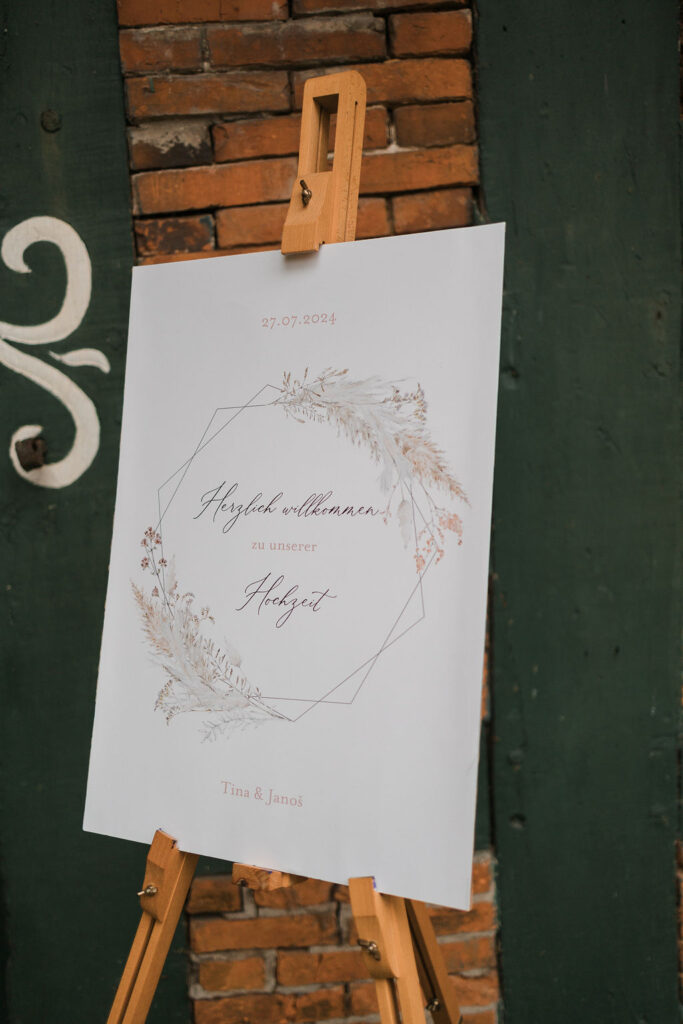 27.07.2024
Herzlich willkommen
zu unserer
Hochzeit
Tina & Janoš